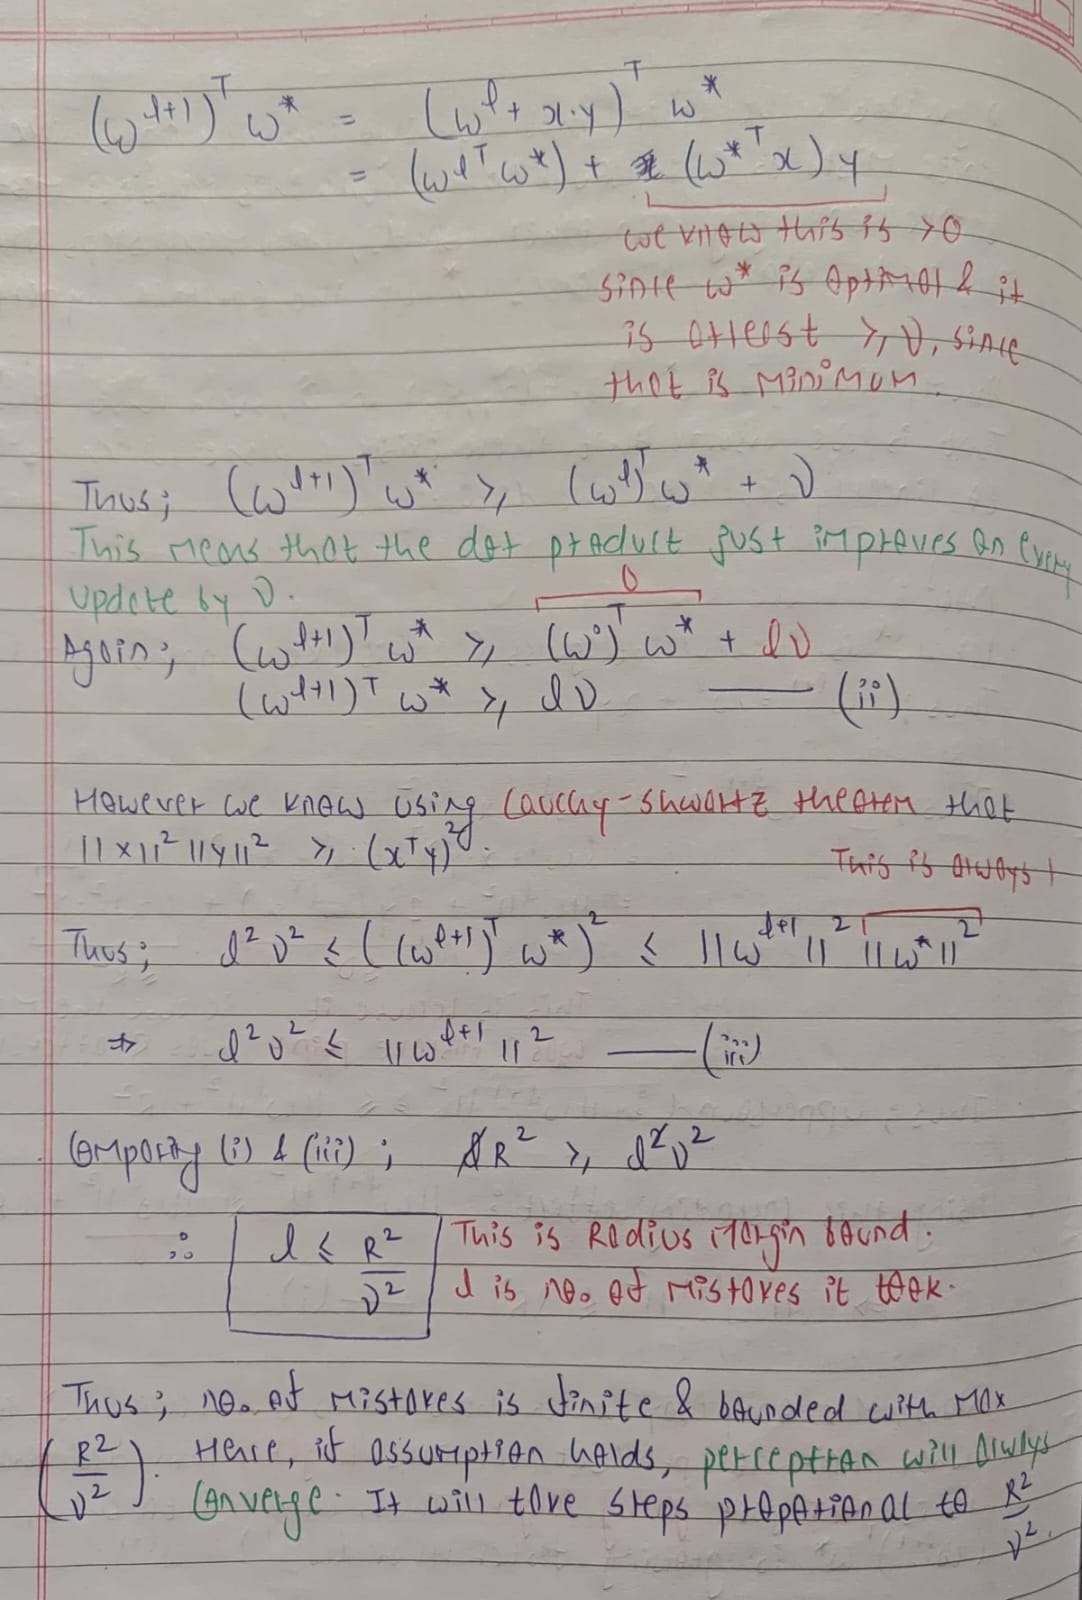 (ω^{l+1})^T ω* = (ω^l + x.y)^T ω*
= (ω^{lT} ω*) + (ω*^T x) y
we know this is >0
since ω* is optimal & it
is atleast ≥ γ, since
that is minimum.
Thus; (ω^{l+1})^T ω* ≥ (ω^l)^T ω* + γ
This means that the dot product just improves on every
update by γ.
0
Again; (ω^{l+1})^T ω* ≥ (ω^0)^T ω* + lγ
(ω^{l+1})^T ω* ≥ lγ —— (ii)
However we know using Cauchy-Shwartz theorem that
||x||² ||y||² ≥ (x^T y)².
This is always 1
Thus; l²γ² ≤ ((ω^{l+1})^T ω*)² ≤ ||ω^{l+1}||² ||ω*||²
⇒ l²γ² ≤ ||ω^{l+1}||² —— (iii)
Comparing (i) & (iii); lR² ≥ l²γ²
∴ l ≤ R²/γ² This is Radius Margin bound.
l is no. of mistakes it took.
Thus; no. of mistakes is finite & bounded with max
(R²/γ²). Hence, if assumption holds, perceptron will always
converge. It will take steps propotional to R²/γ².